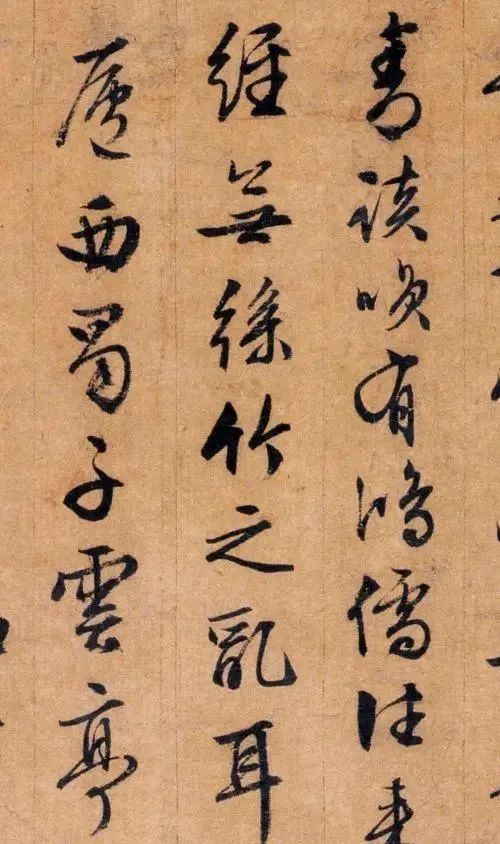 青談咲有鴻儒往来
經無絲竹之亂耳
廬西蜀子雲亭